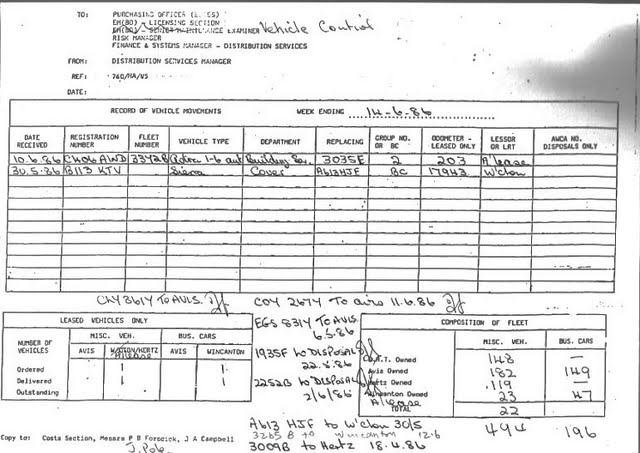 TO: PURCHASING OFFICER
LICENSING SECTION
EXAMINER Vehicle Control
RISK MANAGER
FINANCE & SYSTEMS MANAGER - DISTRIBUTION SERVICES
FROM: DISTRIBUTION SERVICES MANAGER
REF: 740/HA/VS
DATE:
RECORD OF VEHICLE MOVEMENTS WEEK ENDING 14-6.86
DATE RECEIVED REGISTRATION NUMBER FLEET NUMBER VEHICLE TYPE DEPARTMENT REPLACING GROUP NO. OR BC ODOMETER - LEASED ONLY LESSOR OR LRT AWCA NO. DISPOSALS ONLY
10.6.86 3342B 1-6 aut Building 3035E 2 203 A'lease
30.5.86 B113 KTV Sierra Cover A613HJF BC 17943 W'cton
TO AVIS. COY 267Y To avis 11.6.86
EGS 831Y TO AVIS
6.5.86
LEASED VEHICLES ONLY
NUMBER OF VEHICLES MISC. VEH. BUS. CARS
AVIS AVIS WINCANTON
Ordered 1 1
Delivered 1 1
Outstanding
1935F to DISPOSAL
22.5.86
2252B to DISPOSAL
2/6/86
COMPOSITION OF FLEET
MISC. VEH. BUS. CARS
L.R.T. Owned 148 —
Avis Owned 182 149
Hertz Owned 119 —
Wincanton Owned 23 47
A'lease 22
TOTAL 494 196
A613 HJF to W'cton 30/5
3265 B to Wincanton 12.6
3009B to Hertz 18.4.86
Copy to: Costa Section, Messrs P B Forndick, J A Campbell
J. Pole